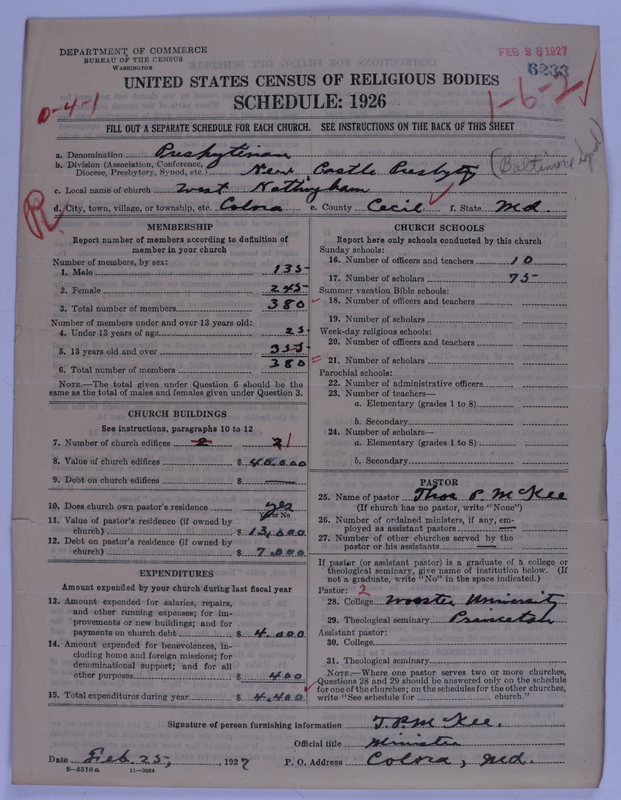 DEPARTMENT OF COMMERCE
BUREAU OF THE CENSUS
WASHINGTON
FEB 28 1927
6233
UNITED STATES CENSUS OF RELIGIOUS BODIES
SCHEDULE: 1926
0-4-1
1-6-2
FILL OUT A SEPARATE SCHEDULE FOR EACH CHURCH. SEE INSTRUCTIONS ON THE BACK OF THIS SHEET
a. Denomination Presbyterian
b. Division (Association, Conference, Diocese, Presbytery, Synod, etc.) New Castle Presbyty
(Baltimore Synod)
c. Local name of church West Nottingham
d. City, town, village, or township, etc. Colora e. County Cecil f. State Md.
R
MEMBERSHIP
Report number of members according to definition of
member in your church
Number of members, by sex:
1. Male 135
2. Female 245
3. Total number of members 380
Number of members under and over 13 years old:
4. Under 13 years of age 25
5. 13 years old and over 355
6. Total number of members 380
NOTE.—The total given under Question 6 should be
same as the total of males and females given under Question 3.
CHURCH BUILDINGS
See instructions, paragraphs 10 to 12
7. Number of church edifices 2 2 1
8. Value of church edifices $ 40,000
9. Debt on church edifices $ —
10. Does church own pastor's residence yes
Yes or No
11. Value of pastor's residence (if owned by
church) $ 13,000
12. Debt on pastor's residence (if owned by
church) $ 7,000
EXPENDITURES
Amount expended by your church during last fiscal year
13. Amount expended for salaries, repairs,
and other running expenses; for im-
provements or new buildings; and for
payments on church debt $ 4,000
14. Amount expended for benevolences, in-
cluding home and foreign missions; for
denominational support; and for all
other purposes $ 400
15. Total expenditures during year $ 4,400
CHURCH SCHOOLS
Report here only schools conducted by this church
Sunday schools:
16. Number of officers and teachers 10
17. Number of scholars 75
Summer vacation Bible schools:
18. Number of officers and teachers
19. Number of scholars
Week-day religious schools:
20. Number of officers and teachers
21. Number of scholars
Parochial schools:
22. Number of administrative officers
23. Number of teachers—
a. Elementary (grades 1 to 8)
b. Secondary
24. Number of scholars—
a. Elementary (grades 1 to 8)
b. Secondary
PASTOR
25. Name of pastor Thos. P. McKee
(If church has no pastor, write "None")
26. Number of ordained ministers, if any, em-
ployed as assistant pastors —
27. Number of other churches served by the
pastor or his assistants —
If pastor (or assistant pastor) is a graduate of a college or
theological seminary, give name of institution below. (If
not a graduate, write "No" in the space indicated.)
Pastor: 2
28. College Wooster University
29. Theological seminary Princeton
Assistant pastor:
30. College
31. Theological seminary
NOTE.—Where one pastor serves two or more churches,
Questions 28 and 29 should be answered only on the schedule
for one of the churches; on the schedules for the other churches,
write "See schedule for church."
Signature of person furnishing information T. P. McKee.
Official title Minister
Date Feb. 25, 1927 P. O. Address Colora, Md.
8—5518a 11—9684